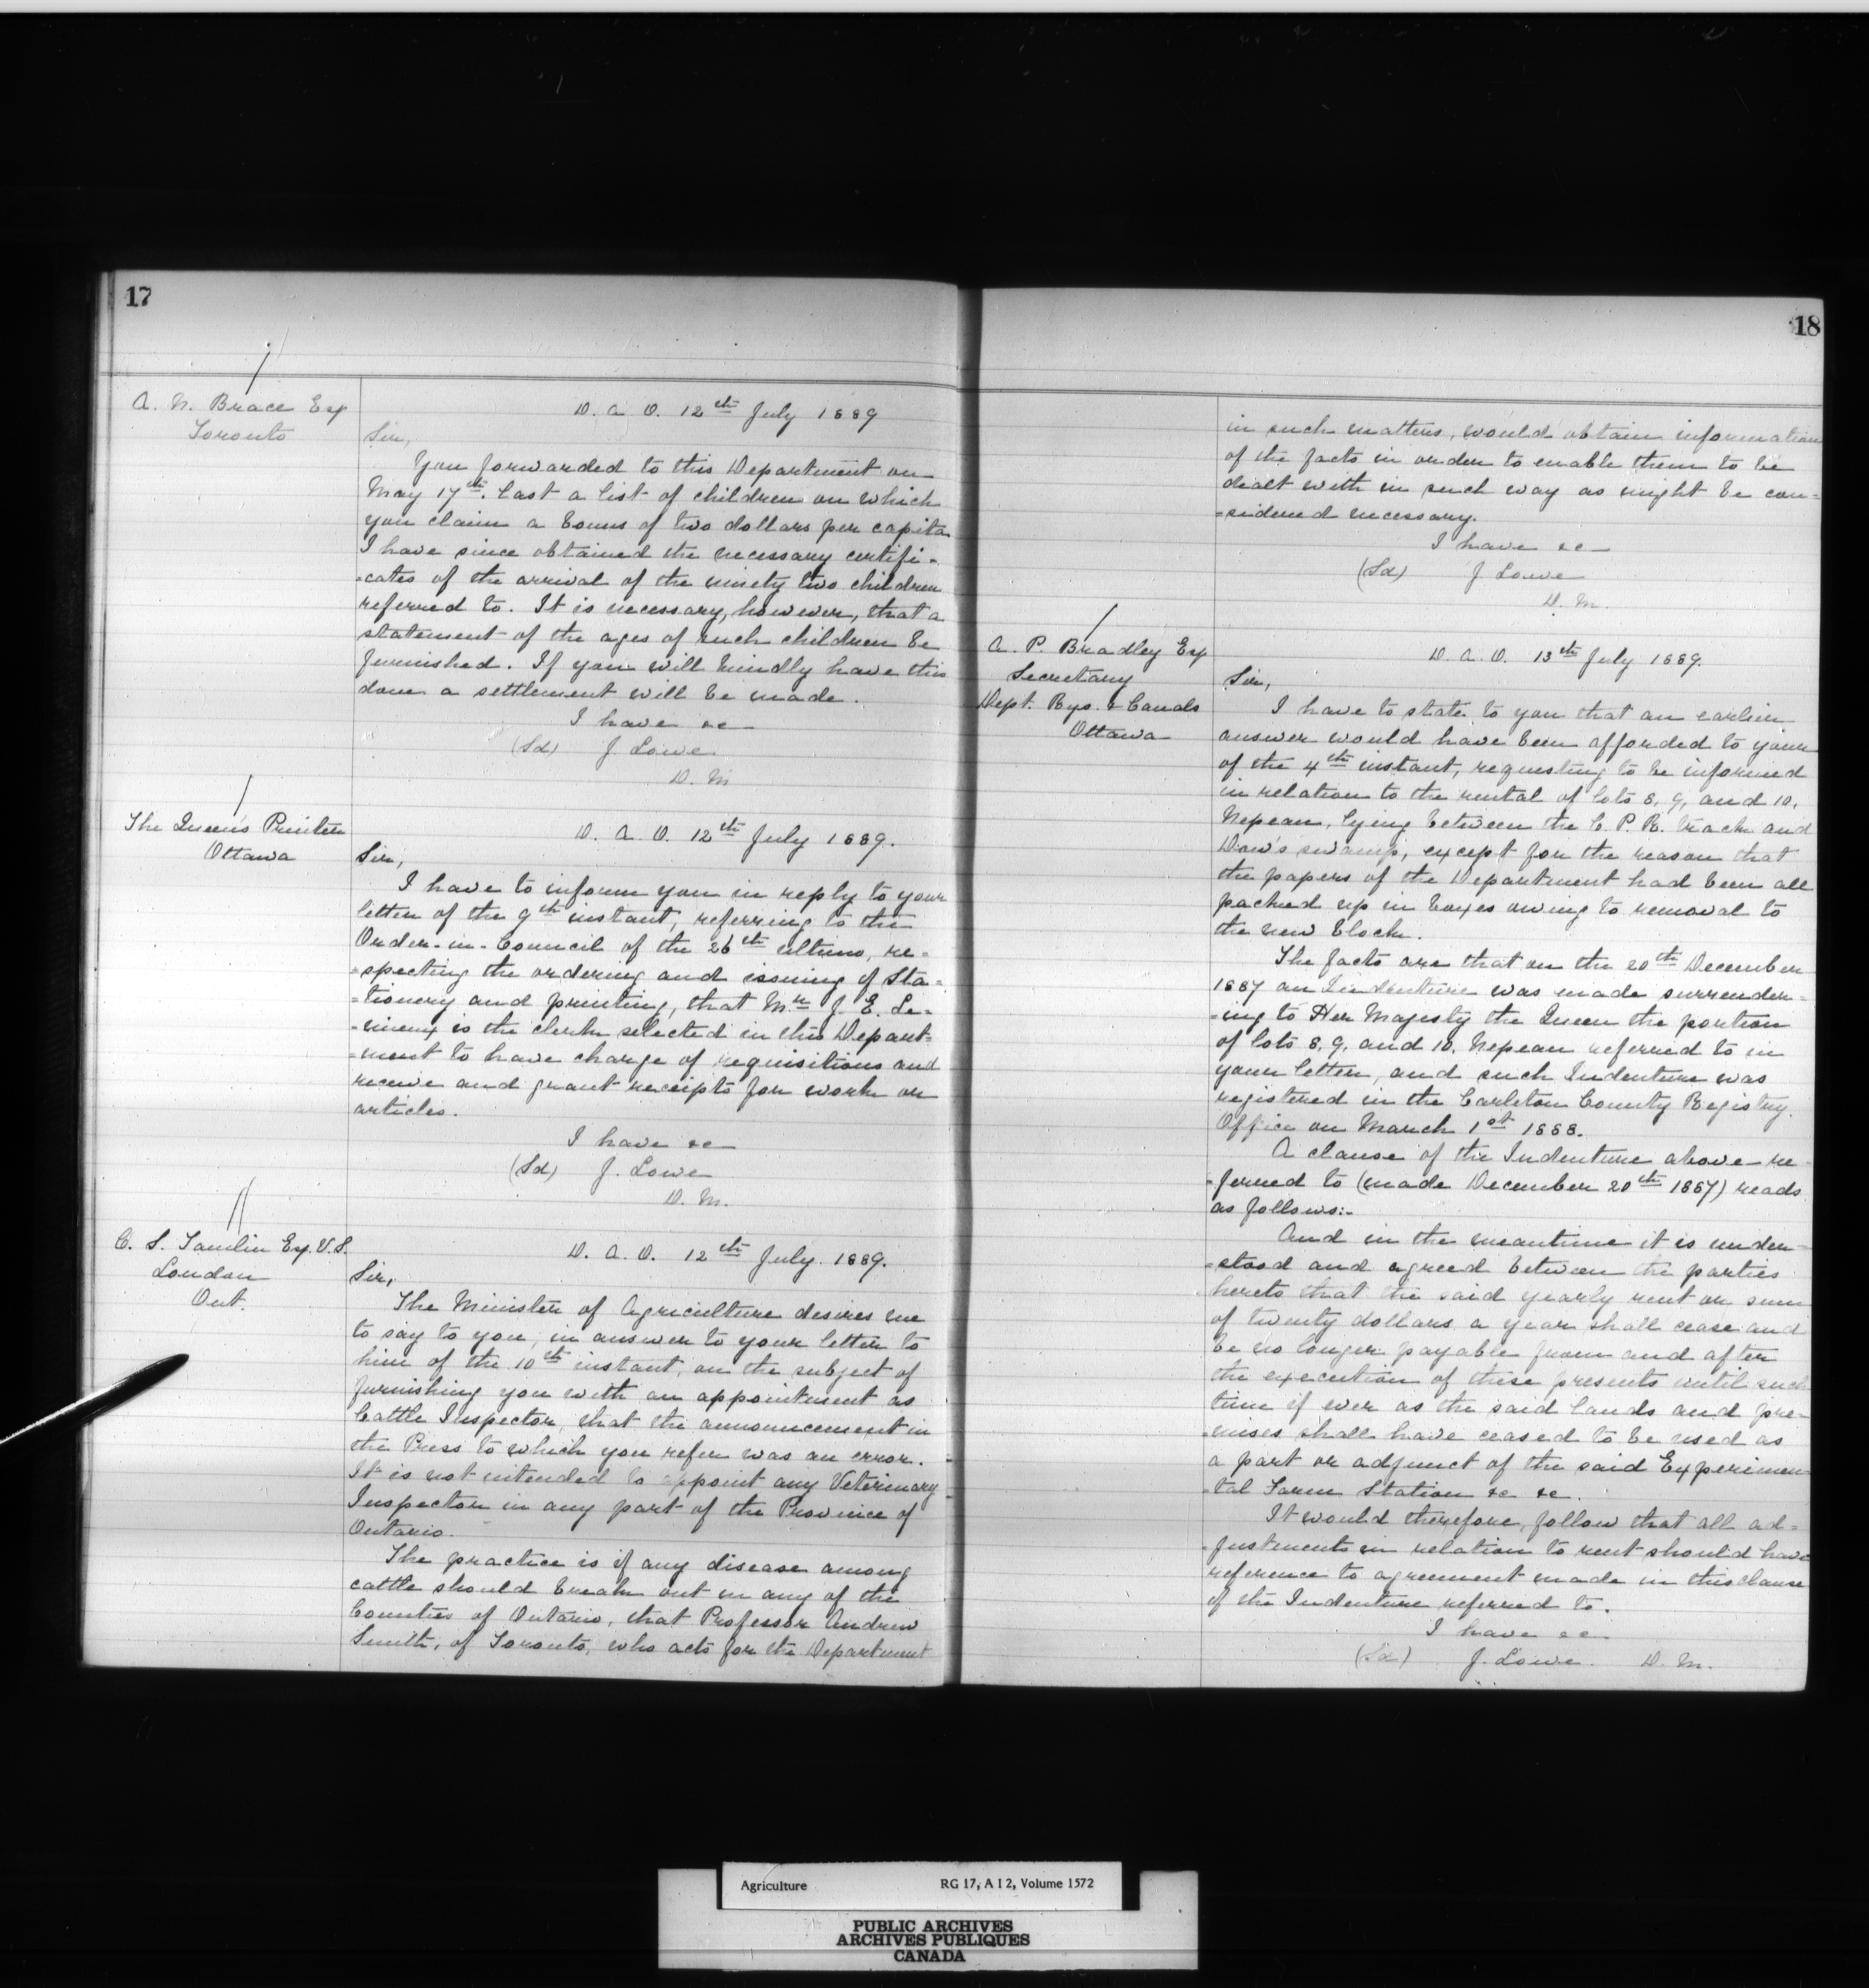 17
A. N. Brace Esq
Toronto
D. A. O. 12th July 1889
Sir,
You forwarded to this Department on
May 17th. last a list of children on which
you claim a bonus of two dollars per capita
I have since obtained the necessary certifi-
-cates of the arrival of the ninety two children
referred to. It is necessary, however, that a
statement of the ages of such children be
furnished. If you will kindly have this
done a settlement will be made.
I have &c
(Sd) J. Lowe
D. M
The Queen's Printer
Ottawa
D. A. O. 12th July 1889.
Sir,
I have to inform you in reply to your
letter of the 9th instant, referring to the
Order-in-Council of the 26th ultimo, re-
-specting the ordering and issuing of Sta-
-tionery and printing, that Mr J. E. Le-
-mieux is the clerk selected in this Depart-
-ment to have charge of requisitions and
receive and grant receipts for work or
articles.
I have &c
(Sd) J. Lowe
D. M.
C. S. Tamlin Esq. V.S.
London
Ont.
D. A. O. 12th July. 1889.
Sir,
The Minister of Agriculture desires me
to say to you, in answer to your letter to
him of the 10th instant, on the subject of
furnishing you with an appointment as
Cattle Inspector, that the announcement in
the Press to which you refer was an error.
It is not intended to appoint any Veterinary
Inspector in any part of the Province of
Ontario.
The practice is if any disease among
cattle should break out in any of the
Counties of Ontario, that Professor Andrew
Smith, of Toronto, who acts for the Department
18
in such matters, would obtain information
of the facts in order to enable them to be
dealt with in such way as might be con-
-sidered necessary.
I have &c
(Sd) J Lowe
D. M.
A. P. Bradley Esq
Secretary
Dept. Rys. & Canals
Ottawa
D. A. O. 13th July 1889.
Sir,
I have to state to you that an earlier
answer would have been afforded to yours
of the 4th instant, requesting to be informed
in relation to the rental of lots 8, 9, and 10,
Nepean, lying between the C. P. R. track and
Dow's swamp, except for the reason that
the papers of the Department had been all
packed up in boxes owing to removal to
the new block.
The facts are that on the 20th December
1887 an Indenture was made surrender-
-ing to Her Majesty the Queen the portion
of lots 8, 9, and 10, Nepean referred to in
your letter, and such Indenture was
registered in the Carleton County Registry
Office on March 1st 1888.
A clause of the Indenture above re-
-ferred to (made December 20th 1887) reads
as follows:-
And in the meantime it is under-
-stood and agreed between the parties
hereto that the said yearly rent or sum
of twenty dollars a year shall cease and
be no longer payable from and after
the execution of these presents until such
time if ever as the said lands and pre-
-mises shall have ceased to be used as
a part or adjunct of the said Experimen-
-tal Farm Station &c &c.
It would therefore, follow that all ad-
-justments in relation to rent should have
reference to agreement made in this clause
of the Indenture referred to.
I have &c
(Sd) J. Lowe. D. M.
Agriculture RG 17, A I 2, Volume 1572
PUBLIC ARCHIVES
ARCHIVES PUBLIQUES
CANADA